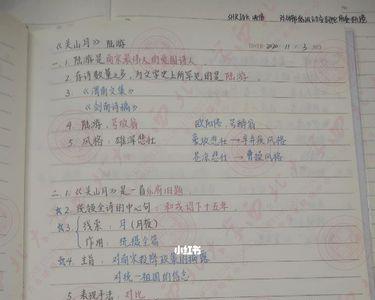 《关山月》 陆游
DATE 2020 . 11 . 3
一、1. 陆游是南宋最伟大的爱国诗人
2. 存诗数量之多，为文学史上所罕见的是 陆游 。
3. 《渭南文集》
《剑南诗稿》
4. 陆游，号放翁 欧阳修，号醉翁
5. 风格：雄浑悲壮 豪放悲壮→辛弃疾风格
苍凉悲壮→曹操风格
二、1.《关山月》是一首乐府旧题
2. 统领全诗的中心句：和戎诏下十五年
3. 线索：月（月夜）
作用：统摄全篇
小红书
4. 主旨：对南宋投降政策的揭露
对统一祖国的信念
5. 表现手法：对比